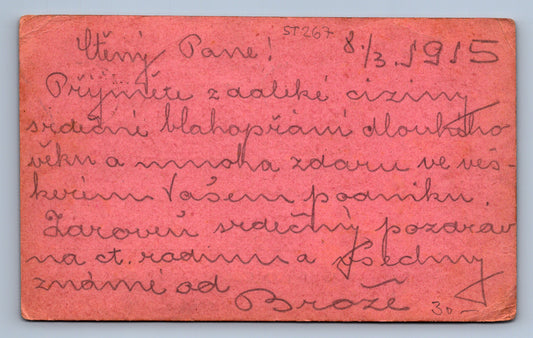 Ctěný Pane! ST267 8./3. 1915
Přijměte z daleké ciziny
srdečné blahopřání dlouhého
věku a mnoha zdaru ve veš-
kerém Vašem podniku.
Zároveň srdečný pozdrav
na ct. rodinu a všechny
známé od
Brože 30-